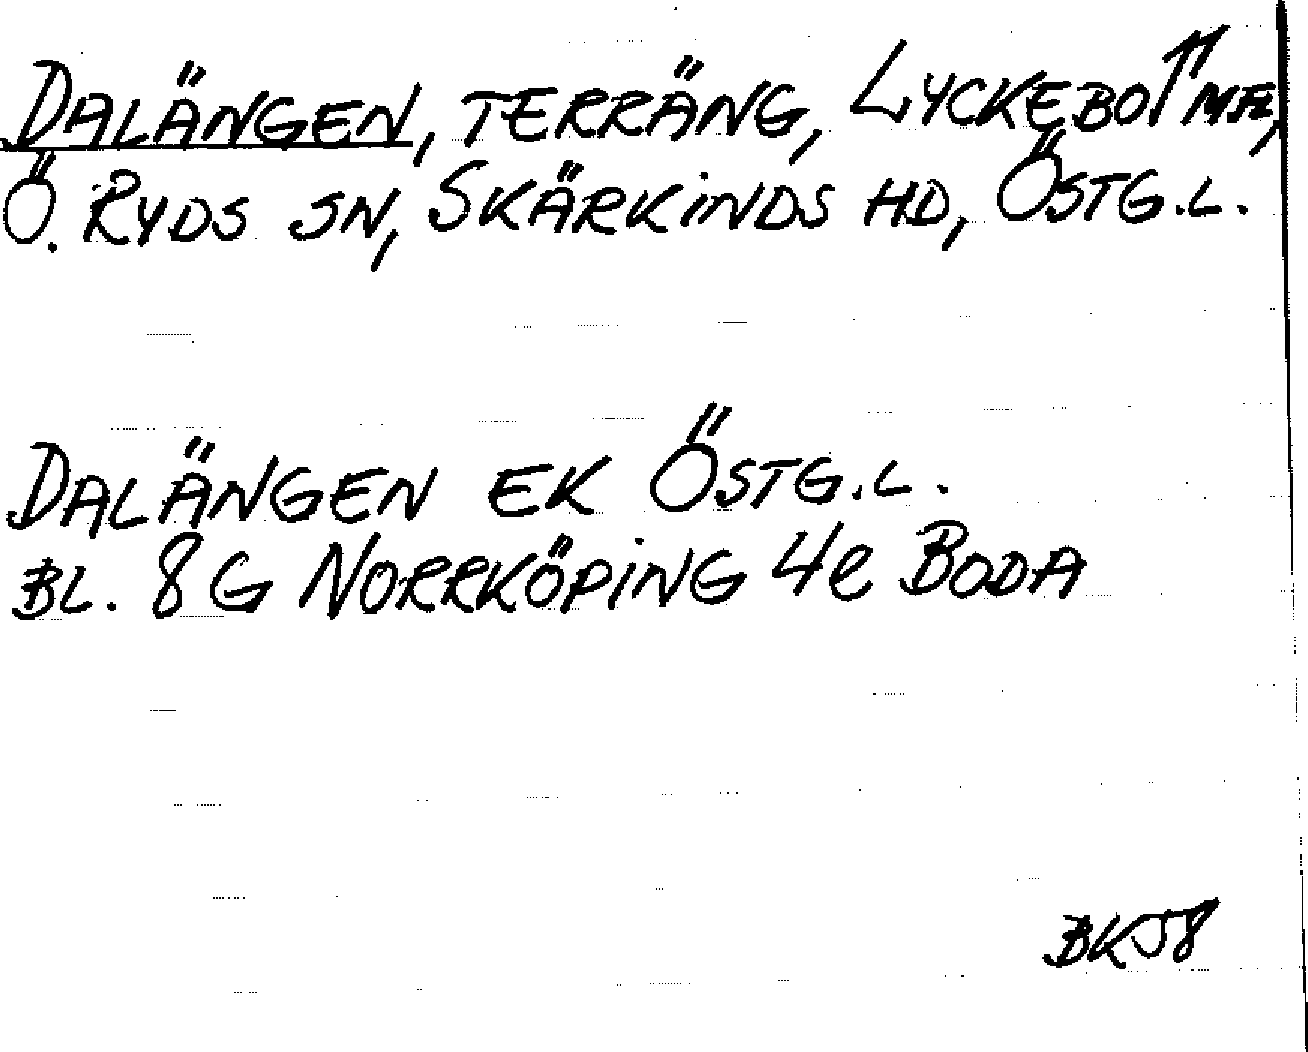 DALÄNGEN, TERRÄNG, LYCKEBO 1¹¹ M FL,
Ö. RYDS SN, SKÄRKINDS HD, ÖSTG.L.
DALÄNGEN EK ÖSTG.L.
BL. 8G NORRKÖPING 4e BODA
BK58